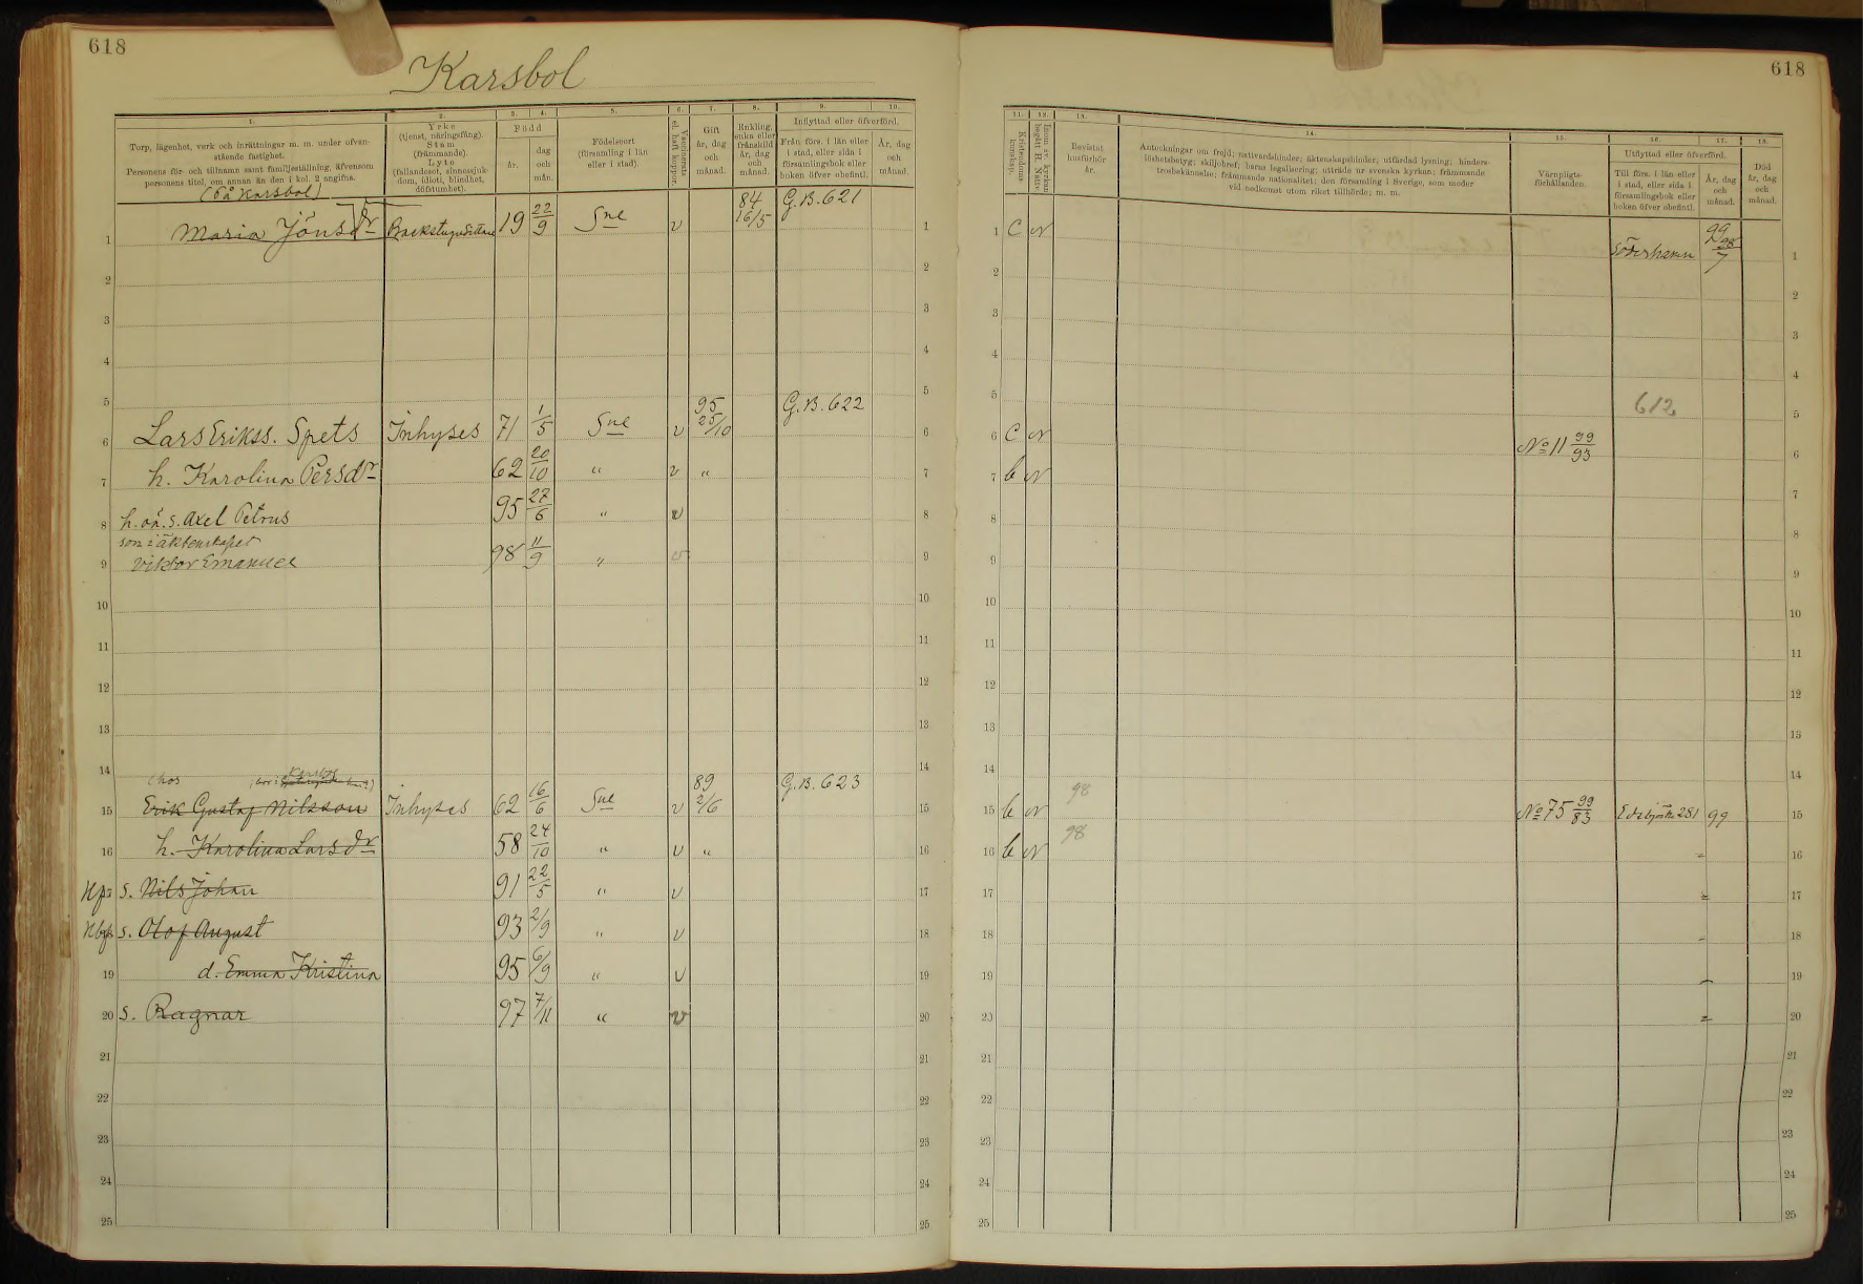 618
Karsbol
1. 2. 3. 4. 5. 6. 7. 8. 9. 10.
Torp, lägenhet, verk och inrättningar m. m. under ofvanstående fastighet.
Personens för- och tillnamn samt familjeställning, äfvensom personens titel, om annan än den i kol. 2 angifna.
Yrke
(tjenst, näringsfång).
Stam
(främmande).
Lyte
(fallandesot, sinnessjukdom, idioti, blindhet, döfstumhet).
Född
år.
dag och mån.
Födelseort
(församling i län eller i stad).
Vaccinerats el. haft koppor.
Gift
år, dag och månad.
Enkling, enka eller frånskild
år, dag och månad.
Inflyttad eller öfverförd.
Från förs. i län eller i stad, eller sida i församlingsbok eller boken öfver obefintl.
År, dag och månad.
(På Karsbol)
1 Maria Jönsdr Backstugusittare 19 22/9 Sne v 84 16/5 G.B. 621 1
2 2
3 3
4 4
5 5
6 Lars Erikss. Spets Inhyses 71 1/5 Sne v 95 25/10 G.B. 622 6
7 h. Karolina Persdr 62 20/10 " v " 7
8 h. oä. s. Axel Petrus 95 27/6 " v 8
son i äktenskapet
9 Viktor Emanuel 98 11/9 " v 9
10 10
11 11
12 12
13 13
14 hos Karsbol 14
15 Erik Gustaf Nilsson Inhyses 62 16/6 Sne v 89 2/6 G.B. 623 15
16 h. Karolina Larsdr 58 24/10 " v " 16
s. Nils Johan 91 22/5 " v 17
s. Olof August 93 2/9 " v 18
19 d. Emma Kristina 95 6/9 " v 19
20 s. Ragnar 97 7/11 " v 20
21 21
22 22
23 23
24 24
25 25
618
11. 12. 13. 14. 15. 16. 17. 18.
Kristendomskunskap.
Inom sv. kyrkan begått H. Nattv
Bevistat husförhör år.
Anteckningar om frejd; nattvardshinder; äktenskapshinder, utfärdad lysning, hinderslöshetsbetyg; skiljobref; barns legalisering; utträde ur svenska kyrkan; främmande trosbekännelse; främmande nationalitet; den församling i Sverige, som moder vid nedkomst utom riket tillhörde; m. m.
Värnpligtsförhållanden.
Utflyttad eller öfverförd.
Till förs. i län eller i stad, eller sida i församlingsbok eller boken öfver obefintl.
År, dag och månad.
Död
år, dag och månad.
1 C N Söderhamn 99 28/7 1
2 2
3 3
4 4
5 612 5
6 C N No 11 99/93 6
7 b N 7
8 8
9 9
10 10
11 11
12 12
13 13
14 14
15 b N 98 No 75 99/83 Edsbjörke 281 99 15
16 b N 98 16
17 17
18 18
19 19
20 20
21 21
22 22
23 23
24 24
25 25